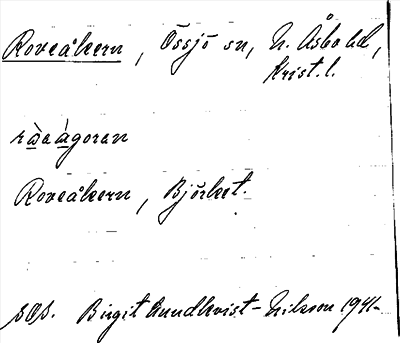 Roveåkern, Össjö sn, N. Åsbo hd,
Krist. l.
Roveåkern, Björket.
SOS. Birgit Lundkvist-Nilsson 1941-